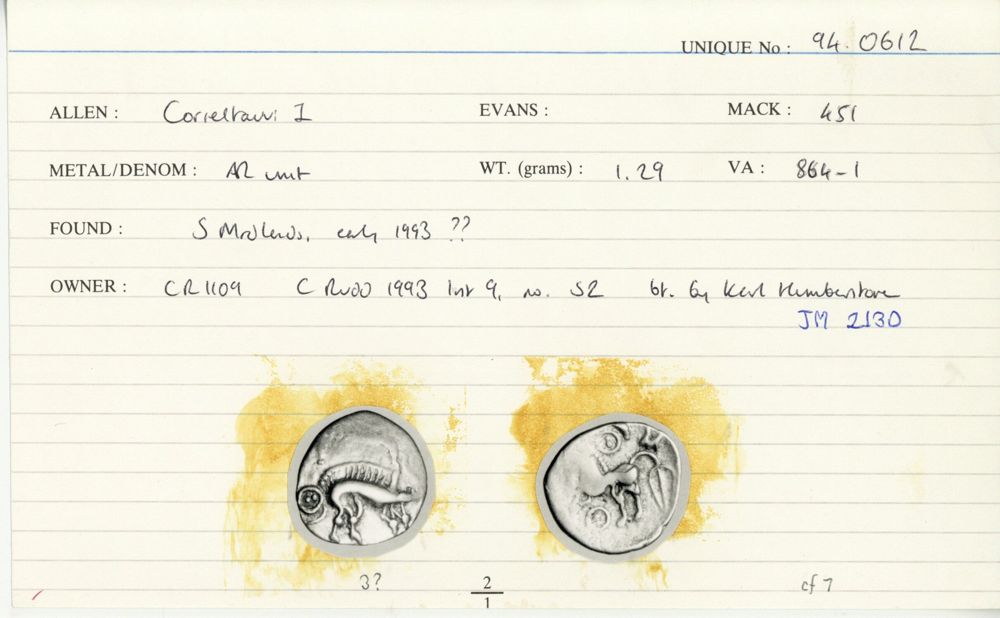 UNIQUE No : 94.0612
ALLEN : Corieltauvi I EVANS : MACK : 451
METAL/DENOM : AR unit WT. (grams) : 1.29 VA : 864-1
FOUND : S Midlands, early 1993 ??
OWNER : CR1109 C Rudd 1993 list 9, no. 52 bt. by Karl Humberstone
JM 2130
3? 2/1 cf 7